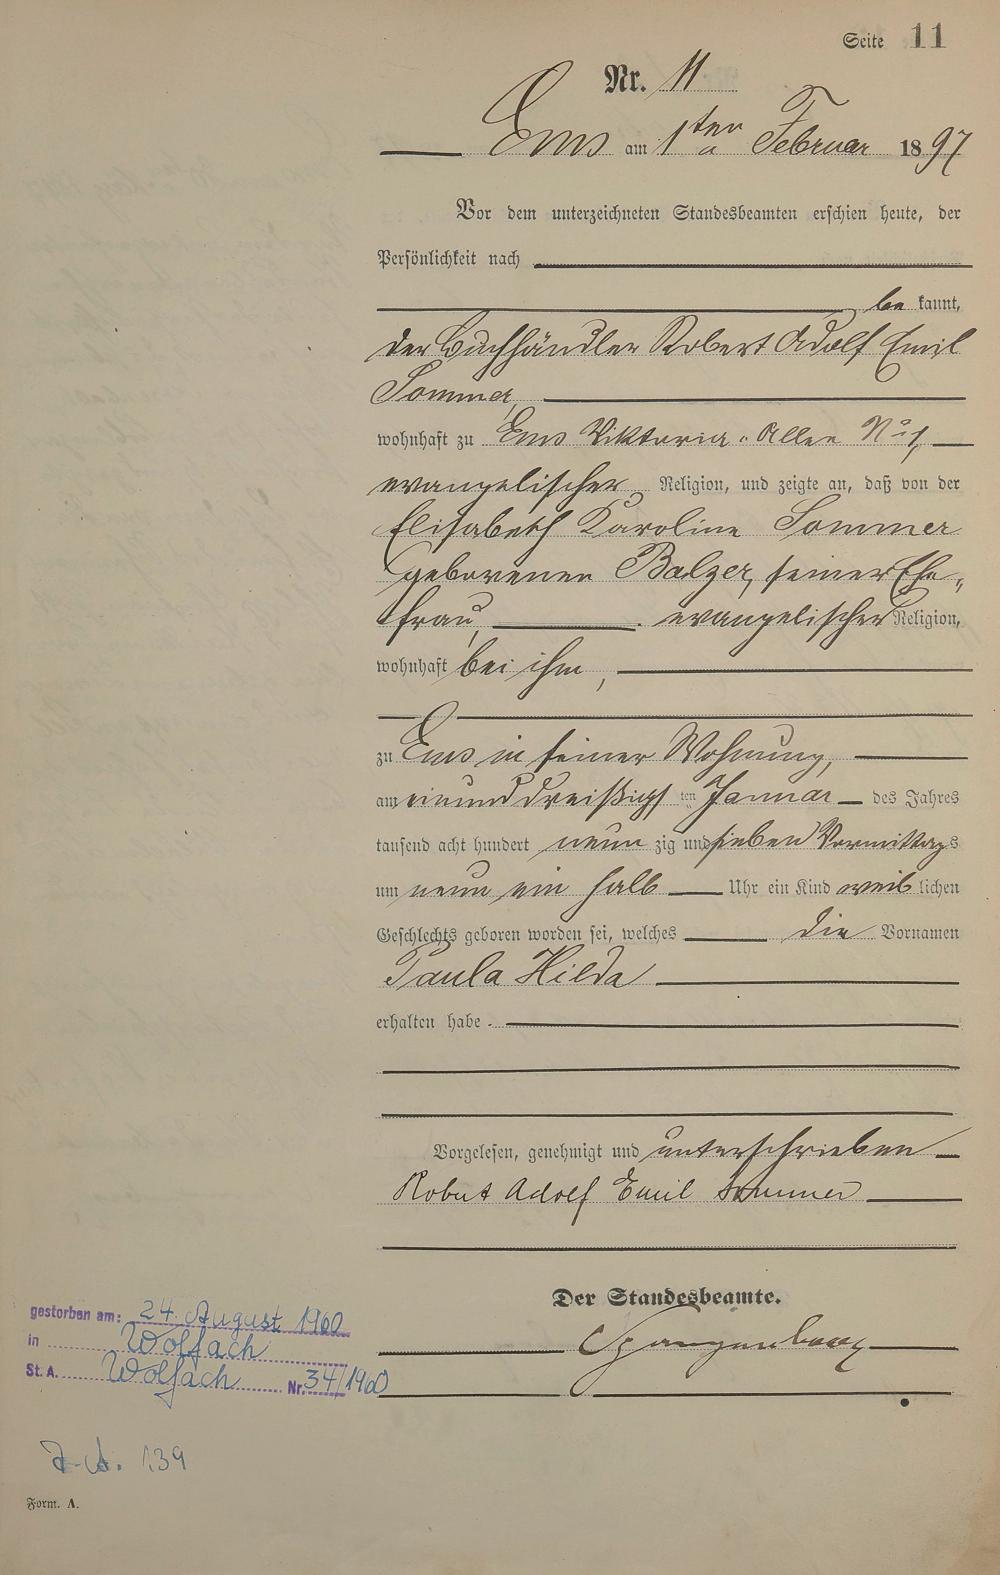 Seite 11
Nr. 11
Ems am 1ten Februar 1897
Vor dem unterzeichneten Standesbeamten erschien heute, der
Persönlichkeit nach
bekannt,
der Buchhändler Robert Adolf Emil
Sommer,
wohnhaft zu Ems Viktoria-Allee No 1,
evangelischer Religion, und zeigte an, daß von der
Elisabeth Karoline Sommer
geborenen Balzer, seiner Ehe-
frau, evangelischer Religion,
wohnhaft bei ihm,
zu Ems in seiner Wohnung,
am einunddreißigsten Januar des Jahres
tausend acht hundert neunzig und sieben Vormittags
um neun ein halb Uhr ein Kind weiblichen
Geschlechts geboren worden sei, welches die Vornamen
Paula Hilda
erhalten habe.
Vorgelesen, genehmigt und unterschrieben
Robert Adolf Emil Sommer
Der Standesbeamte.
gestorben am: 24. August 1960
in Wolfach
St. A. Wolfach Nr. 34/1960
139
Form. A.